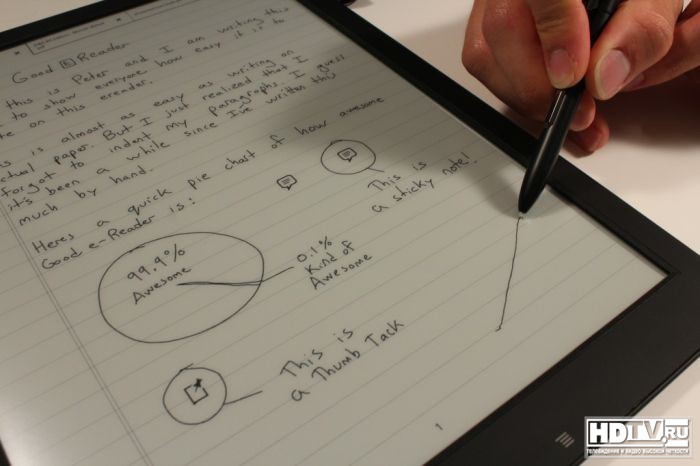 Good E Reader
this is Peter and I am writing this
to show everyone how easy it is to
on this ereader.
is almost as easy as writing on
actual paper. But I just realized that I
forgot to indent my paragraphs. I guess
it's been a while since I've written this
much by hand.
Heres a quick pie chart of how awesome
Good e-Reader is:
This is
a sticky note!
99.9%
Awesome
0.1%
Kind of
Awesome
This is
a Thumb Tack
1
HDTV.RU
ТЕЛЕВИДЕНИЕ И ВИДЕО ВЫСОКОЙ ЧЕТКОСТИ